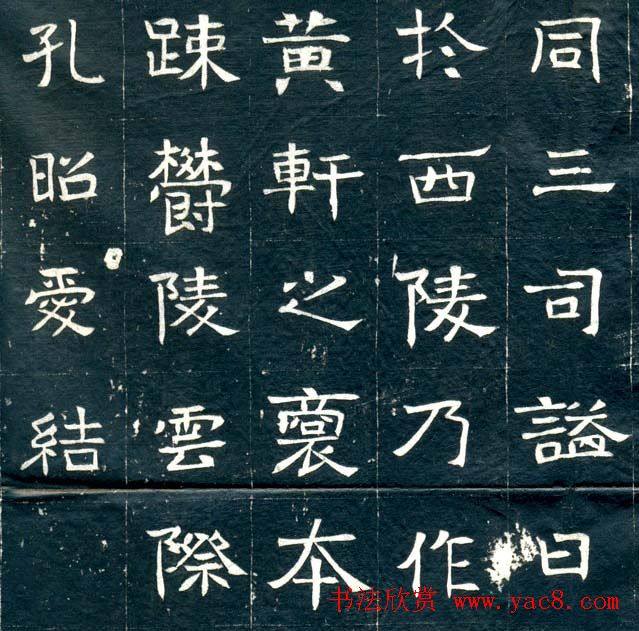 同三司謚曰
扵西陵乃作
黄軒之裔本
踈欝陵雲際
孔昭愛結
书法欣赏 www.yac8.com